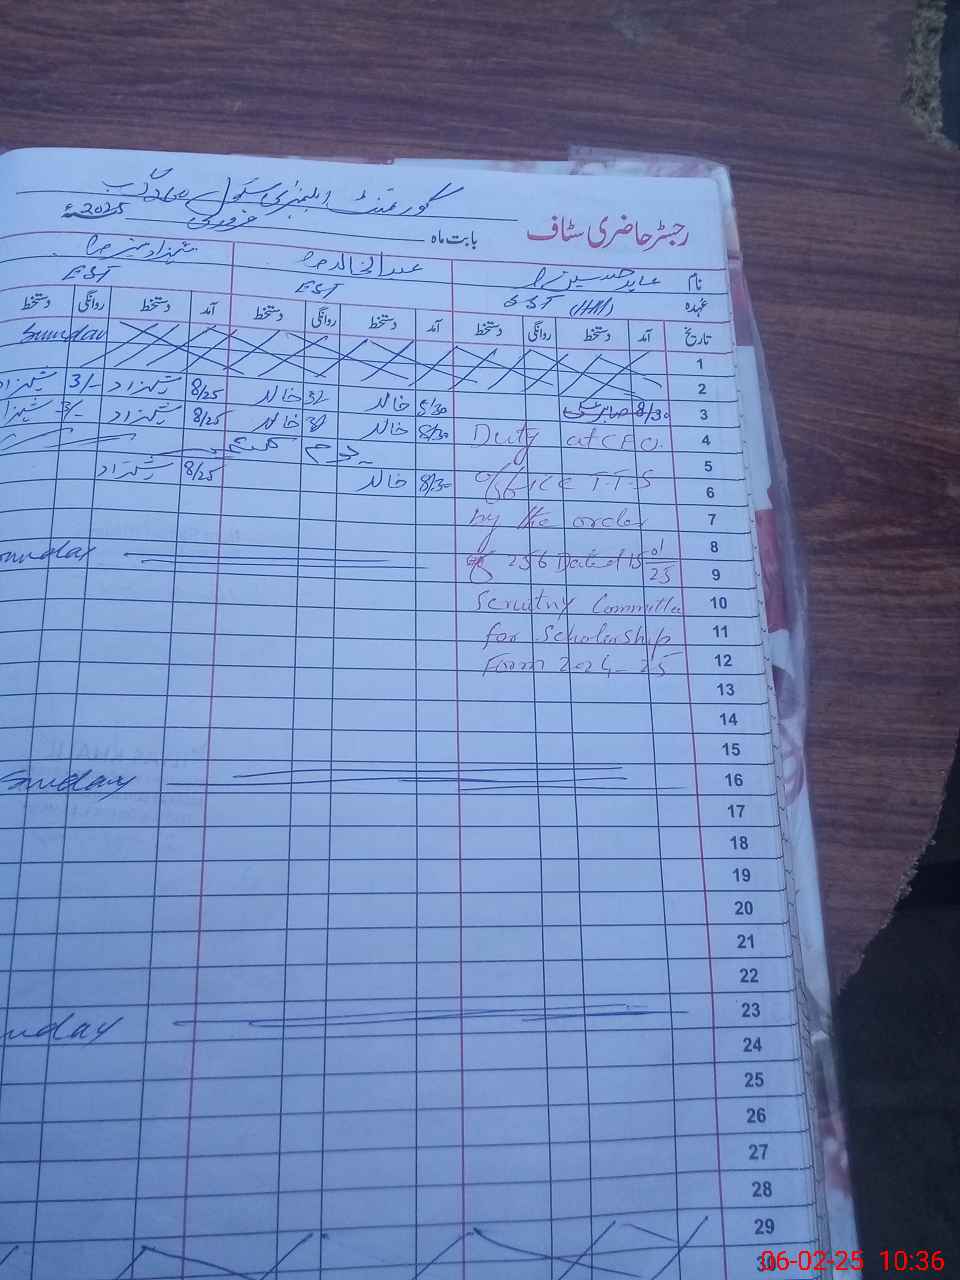 گورنمنٹ ایلیمنٹری سکول 260 گ ب
رجسٹر حاضری سٹاف
بابت ماہ فروری 2025ء
نام عابد حسین عبدالخالق شہزاد
عہدہ SST EST EST
تاریخ آمد دستخط روانگی دستخط آمد دستخط روانگی دستخط آمد دستخط روانگی دستخط
1 Sunday
2
3 8/30 8/30 خالد 3/- خالد 8/25 شہزاد 3/- شہزاد
4 Duty at C.E.O. 8/30 خالد خالد 8/25 شہزاد 3/- شہزاد
5 یوم
6 Office T.T.S 8/30 خالد 8/25 شہزاد
7 by the order
8 of 256 Dated 15/01/25
9 Sunday
10 Scrutny Committee
11 for Scholership
12 Form 2024-25
13
14
15
16 Sunday
17
18
19
20
21
22
23 Sunday
24
25
26
27
28
29
30
06-02-25 10:36